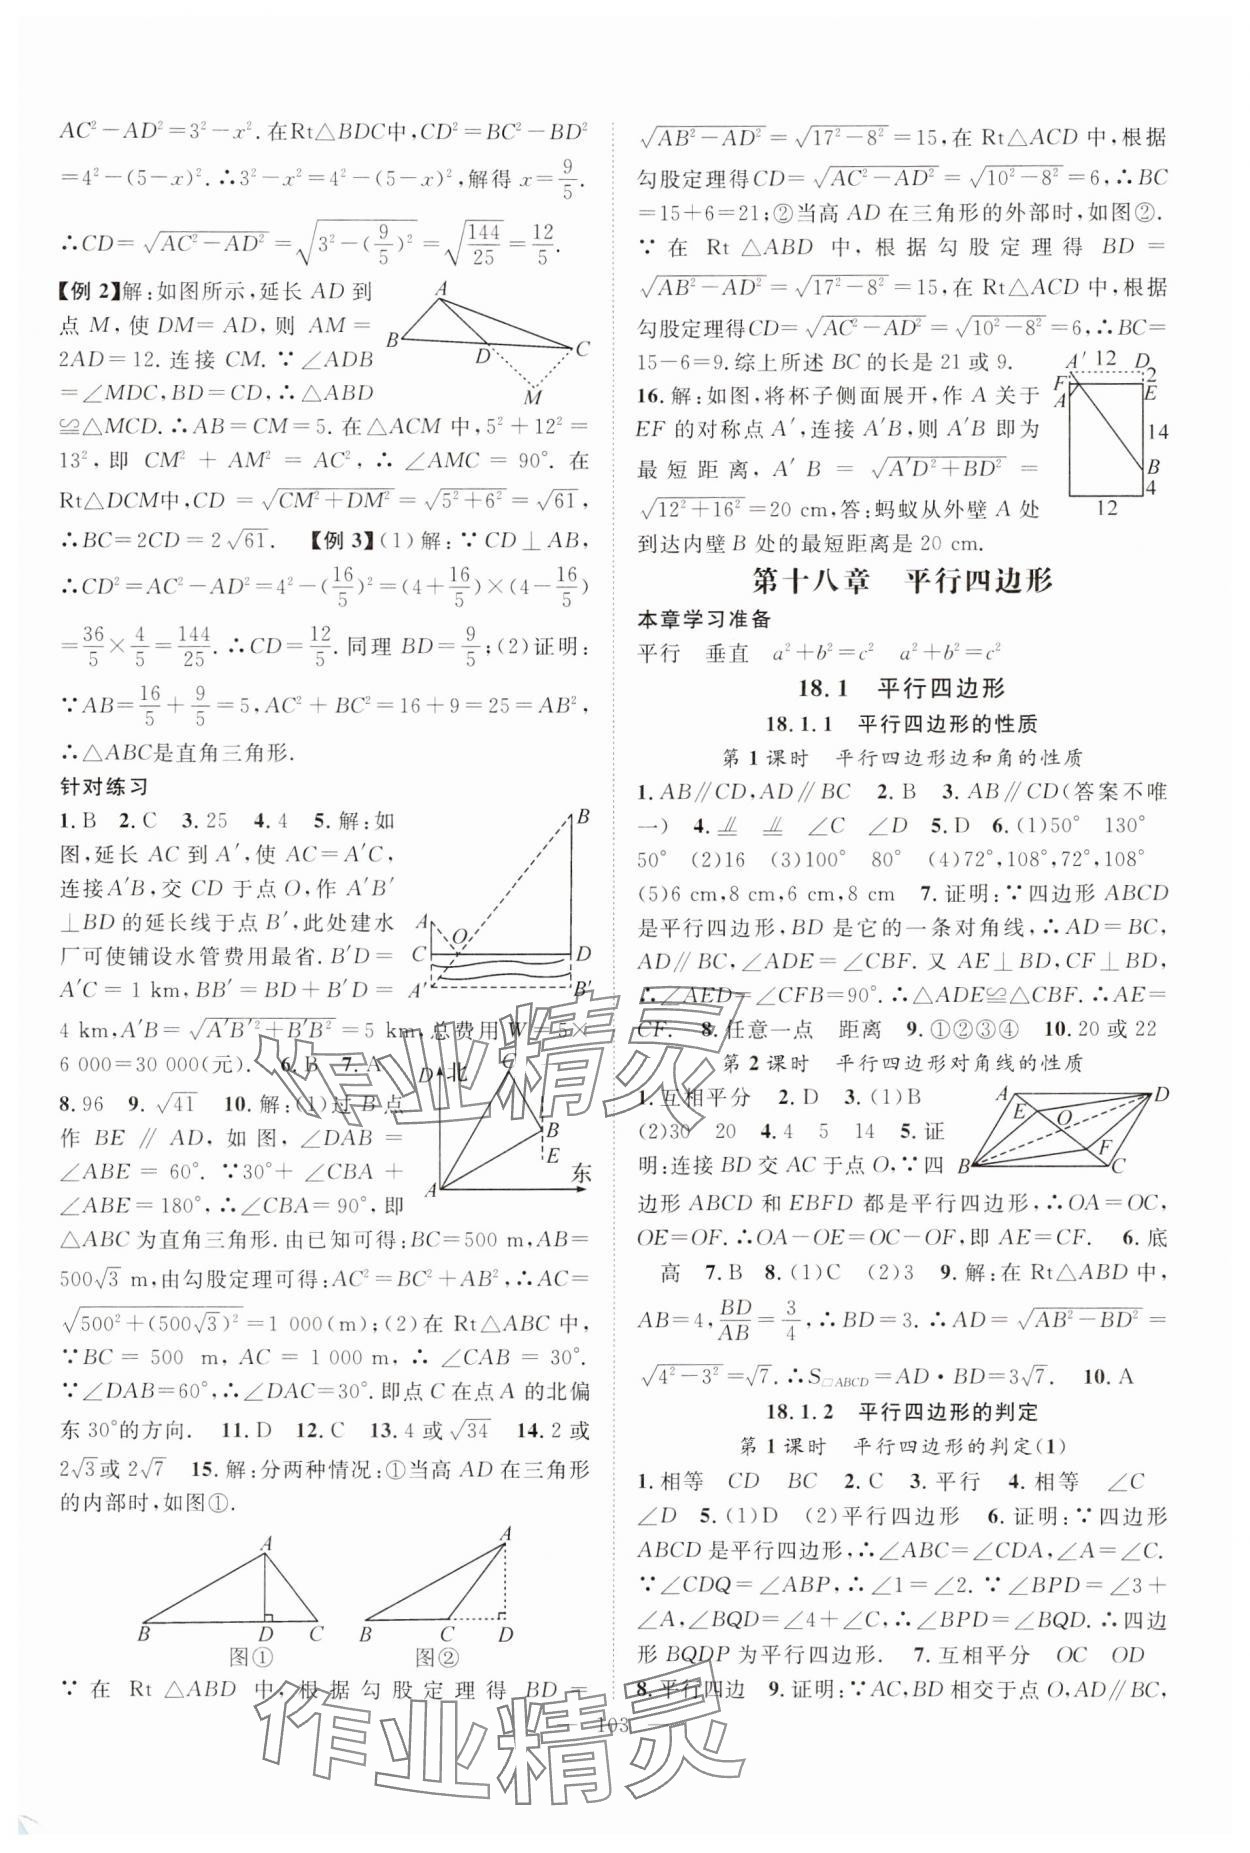 AC²-AD²=3²-x².在Rt△BDC中,CD²=BC²-BD²
=4²-(5-x)².∴3²-x²=4²-(5-x)²,解得 x=9/5.
∴CD=√(AC²-AD²)=√(3²-(9/5)²)=√(144/25)=12/5.
【例 2】解:如图所示,延长 AD 到
点 M,使 DM=AD,则 AM=
2AD=12.连接 CM.∵∠ADB
=∠MDC,BD=CD,∴△ABD
≌△MCD.∴AB=CM=5.在△ACM 中,5²+12²=
13²,即 CM²+AM²=AC²,∴∠AMC=90°.在
Rt△DCM中,CD=√(CM²+DM²)=√(5²+6²)=√61,
∴BC=2CD=2√61. 【例 3】(1)解:∵CD⊥AB,
∴CD²=AC²-AD²=4²-(16/5)²=(4+16/5)×(4-16/5)
=36/5×4/5=144/25.∴CD=12/5.同理 BD=9/5;(2)证明:
∵AB=16/5+9/5=5,AC²+BC²=16+9=25=AB²,
∴△ABC是直角三角形.
A
B
D
C
M
针对练习
1.B 2.C 3.25 4.4 5.解:如
图,延长 AC 到 A′,使 AC=A′C,
连接A′B,交 CD 于点 O,作 A′B′
⊥BD 的延长线于点 B′,此处建水
厂可使铺设水管费用最省.B′D=
A′C=1 km,BB′=BD+B′D=
4 km,A′B=√(A′B′²+B′B²)=5 km,总费用 W=5×
6 000=30 000(元). 6.B 7.A
8.96 9.√41 10.解:(1)过 B 点
作 BE∥AD,如图,∠DAB=
∠ABE=60°.∵30°+∠CBA+
∠ABE=180°,∴∠CBA=90°,即
△ABC 为直角三角形.由已知可得:BC=500 m,AB=
500√3 m,由勾股定理可得:AC²=BC²+AB²,∴AC=
√(500²+(500√3)²)=1 000(m);(2)在 Rt△ABC 中,
∵BC=500 m,AC=1 000 m,∴∠CAB=30°.
∵∠DAB=60°,∴∠DAC=30°.即点 C 在点 A 的北偏
东 30°的方向. 11.D 12.C 13.4 或√34 14.2 或
2√3或2√7 15.解:分两种情况:①当高 AD 在三角形
的内部时,如图①.
B
A
O
C
D
A′
B′
D
北
C
B
E
A
东
A
B
D
C
图①
A
B
C
D
图②
∵在 Rt△ABD 中,根据勾股定理得 BD=
√(AB²-AD²)=√(17²-8²)=15,在 Rt△ACD 中,根据
勾股定理得CD=√(AC²-AD²)=√(10²-8²)=6,∴BC
=15+6=21;②当高 AD 在三角形的外部时,如图②.
∵在 Rt△ABD 中,根据勾股定理得 BD=
√(AB²-AD²)=√(17²-8²)=15,在 Rt△ACD 中,根据
勾股定理得CD=√(AC²-AD²)=√(10²-8²)=6,∴BC=
15-6=9.综上所述 BC 的长是 21 或 9.
16.解:如图,将杯子侧面展开,作 A 关于
EF 的对称点 A′,连接 A′B,则 A′B 即为
最短距离,A′B=√(A′D²+BD²)=
√(12²+16²)=20 cm,答:蚂蚁从外壁 A 处
到达内壁 B 处的最短距离是 20 cm.
A′
12
D
2
F
E
A
14
B
4
12
第十八章 平行四边形
本章学习准备
平行 垂直 a²+b²=c² a²+b²=c²
18.1 平行四边形
18.1.1 平行四边形的性质
第 1 课时 平行四边形边和角的性质
1.AB∥CD,AD∥BC 2.B 3.AB∥CD(答案不唯
一) 4.⫽ ⫽ ∠C ∠D 5.D 6.(1)50° 130°
50° (2)16 (3)100° 80° (4)72°,108°,72°,108°
(5)6 cm,8 cm,6 cm,8 cm 7.证明:∵四边形 ABCD
是平行四边形,BD 是它的一条对角线,∴AD=BC,
AD∥BC,∠ADE=∠CBF.又 AE⊥BD,CF⊥BD,
∴∠AED=∠CFB=90°.∴△ADE≌△CBF.∴AE=
CF. 8.任意一点 距离 9.①②③④ 10.20 或 22
第 2 课时 平行四边形对角线的性质
1.互相平分 2.D 3.(1)B
(2)30 20 4.4 5 14 5.证
明:连接 BD 交 AC 于点 O,∵四
边形 ABCD 和 EBFD 都是平行四边形,∴OA=OC,
OE=OF.∴OA-OE=OC-OF,即 AE=CF. 6.底
高 7.B 8.(1)C (2)3 9.解:在 Rt△ABD 中,
AB=4,BD/AB=3/4,∴BD=3.∴AD=√(AB²-BD²)=
√(4²-3²)=√7.∴S▱ABCD=AD·BD=3√7. 10.A
A
D
E
O
F
B
C
18.1.2 平行四边形的判定
第 1 课时 平行四边形的判定(1)
1.相等 CD BC 2.C 3.平行 4.相等 ∠C
∠D 5.(1)D (2)平行四边形 6.证明:∵四边形
ABCD 是平行四边形,∴∠ABC=∠CDA,∠A=∠C.
∵∠CDQ=∠ABP,∴∠1=∠2.∵∠BPD=∠3+
∠A,∠BQD=∠4+∠C,∴∠BPD=∠BQD.∴四边
形 BQDP 为平行四边形. 7.互相平分 OC OD
8.平行四边 9.证明:∵AC,BD 相交于点 O,AD∥BC,
— 103 —
作业精灵
作业精灵